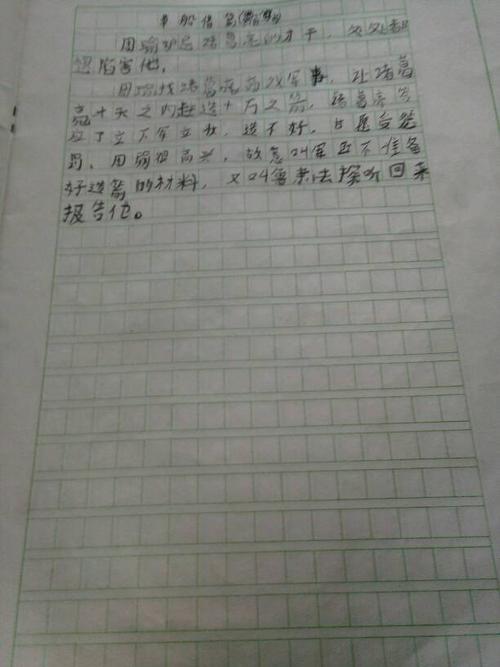 草船借箭(缩写)
周瑜妒忌诸葛亮的才干，处处都
想陷害他。
周瑜找诸葛亮商议军事，让诸葛
亮十天之内赶造十万支箭，诸葛亮答
应了立下军立状，造不好，甘愿受惩
罚，周瑜很高兴，故意叫军匠不准备
好造箭的材料，又叫鲁肃去探听回来
报告他。